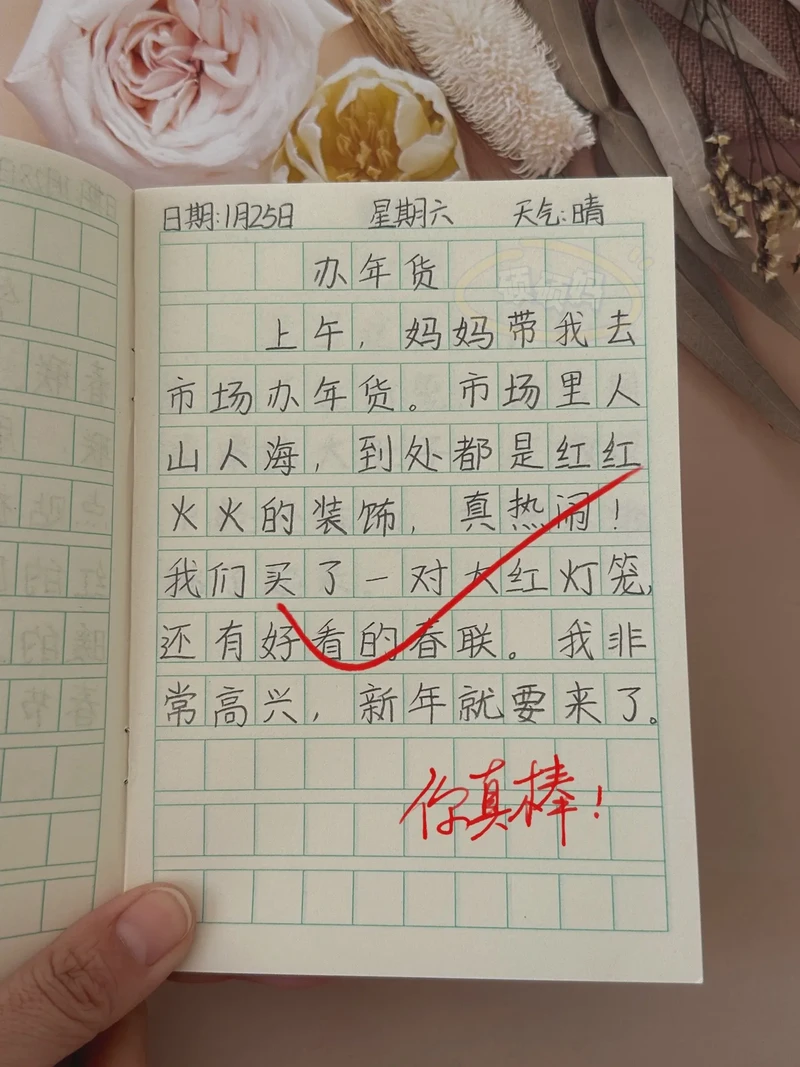 日期:1月25日 星期六 天气:晴
办年货
上午，妈妈带我去
市场办年货。市场里人
山人海，到处都是红红
火火的装饰，真热闹！
我们买了一对大红灯笼，
还有好看的春联。我非
常高兴，新年就要来了。
你真棒！